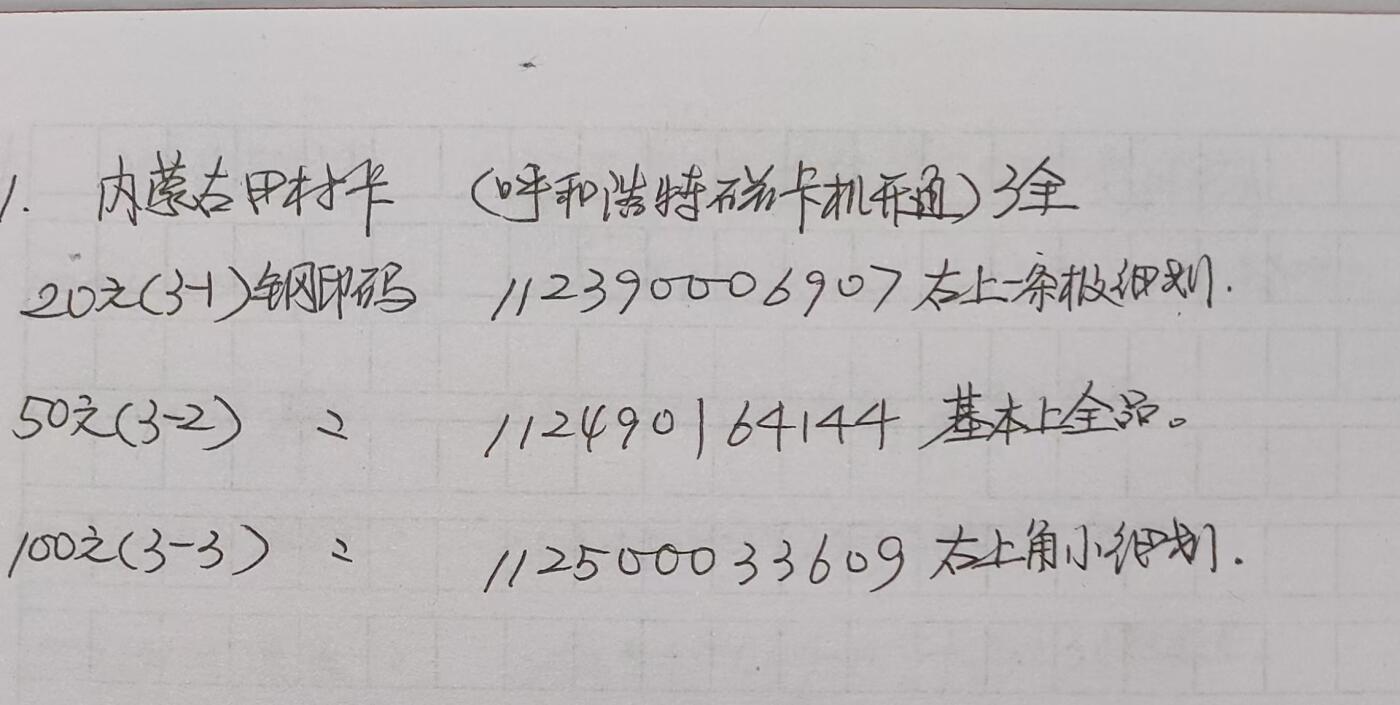 1. 内蒙古田村卡 (呼和浩特磁卡机开通) 3全
20元(3-1)钢印码 112390006907 右上一条极细划.
50元(3-2) 〃 112490164144 基本上全品。
100元(3-3) 〃 112500033609 右上角小细划.